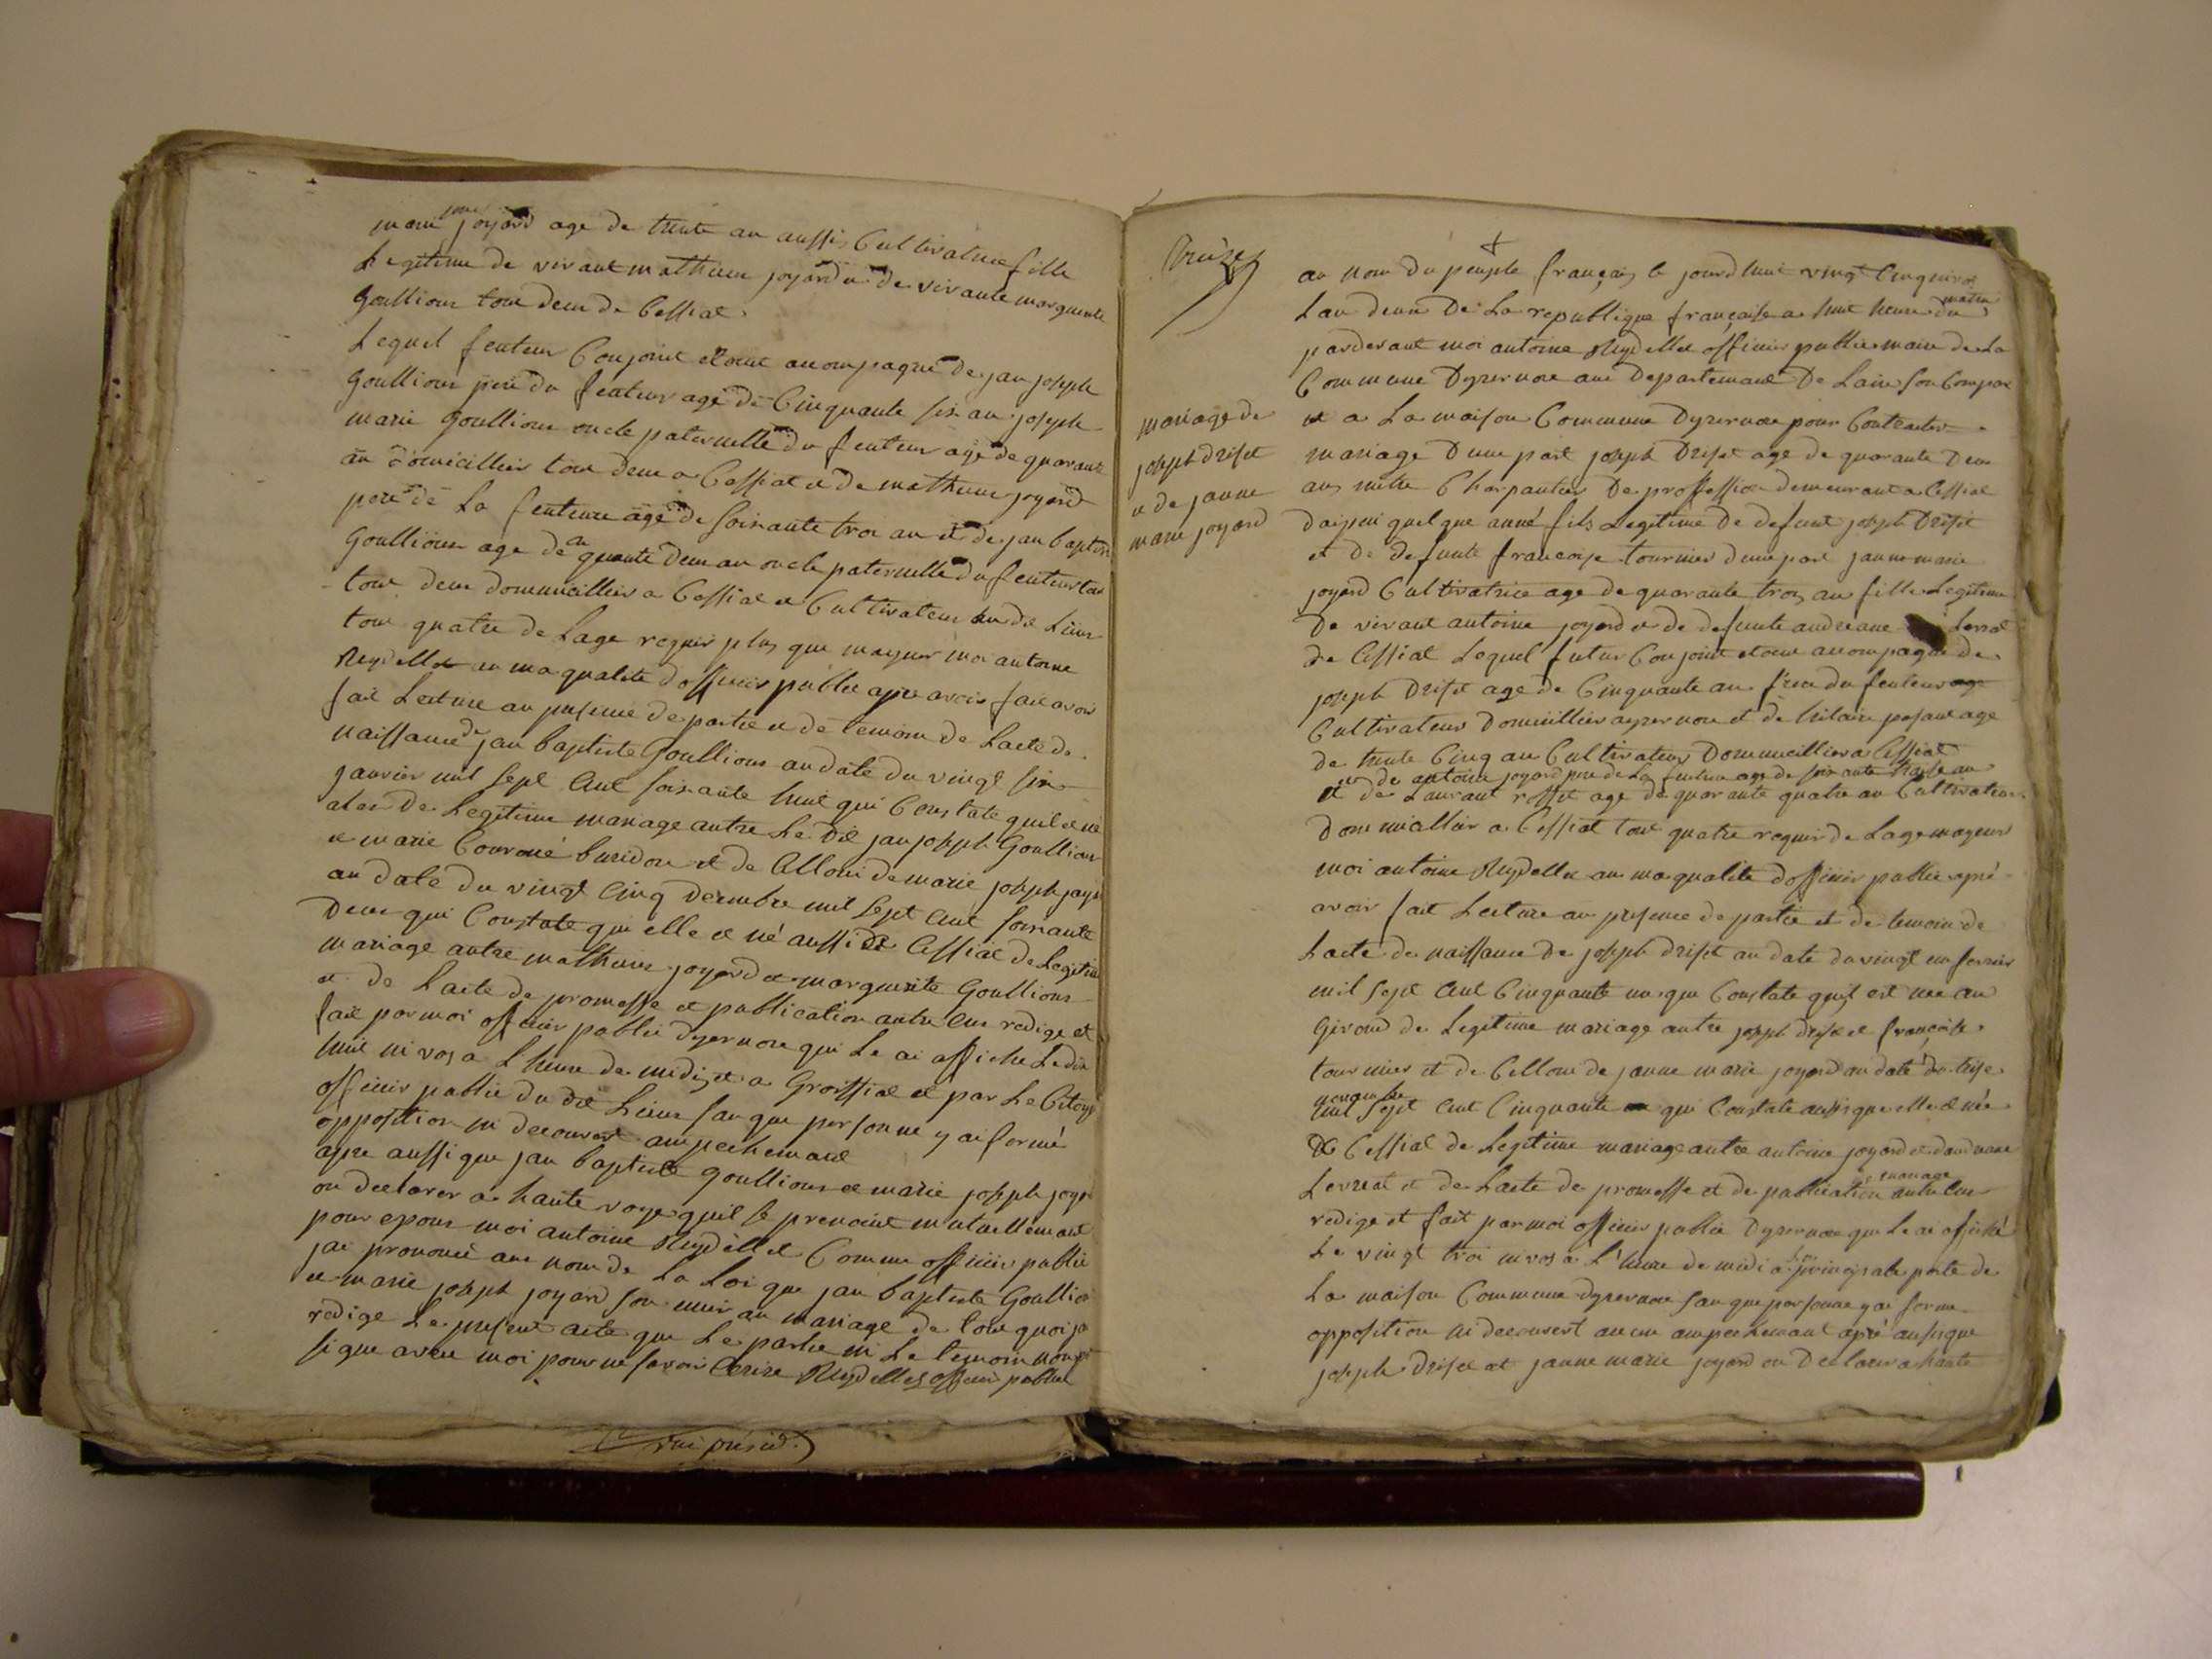 marie joyard age de trente an aussi Cultivatrice fille
Legitime de vivant mathieu joyard et de vivante marguerite
Goullioux tout deux de Cessiat
Lequel feuteur Conjoint etant acompagné de jan joseph
Goullioux pere du feuteur age de Cinquante six an joseph
marie Goullioux oncle paternelle du feuteur age de quarante
an domicillier tout deux a Cessiat et de mathieu joyard
pere de La feuteure age de soixante troi an et de jan baptiste
Goullioux age de quarante deux an oncle paternelle du feuteur
tout deux domicillier a Cessiat et Cultivateur
tout quatre de Lage requis plus que mayeur moi antoine
Reydellet an ma qualité dofficier public apre avoir fait avoir
fait Lecture an presence de partie et de temoin de Lacte de
naissance de jan baptiste Goullioux an date du vingt six
janvier mil sept Cent soixante huit qui Constate quil et né
de Legitime mariage antre Le dit jan joseph Goullioux
et marie et de Celloui de marie joseph joyard
an date du vingt Cinq decembre mil sept Cent soixante
deux qui Constate qui elle et né aussi de Cessiat de Legitime
mariage antre mathieu joyard et marguerite Goullioux
et de Lacte de promesse et publication antre Eux redige et
fait par moi officier public dyzernore qui Le ai affiche Le dix
huit nivos a Lheure de midi et a Groissiat et par Le Citoyen
officier public du dit Lieux san que personne y ai formé
opposition ni decouvert ampechemant
apre aussi que jan baptiste Goullioux et marie joseph joyard
on declarer a haute voye quil se prenoint mutuellemant
pour epoux moi antoine Reydellet Comme officier public
jai prononcé aux nom de La Loi que jan baptiste Goullioux
et marie joseph joyard son unis an mariage de tout quoi jai
redige Le present acte que Le partie ni Le temoin non
signe avec moi pour ne savoir Ecrire Reydellet officier public
Treize
mariage de
joseph drifet
et de janne
marie joyard
au nom du peuple français le jourdhui vingt Cinq nivos
Lan deux De La republique française a huit heure du matin
pardevant moi antoine Reydellet officier public maire de La
Commune Dyzernore aux Departemant De Lain son Compar
et a La maison Commune Dyzernore pour Contracter
mariage Dune part joseph Drifet age de quarante Deux
ans metre Charpantier De proffession demeurant a Cessiat
daipui quelque anné fils Legitime De defunt joseph Drifet
et De defunte francoise tournier dune part janne marie
joyard Cultivatrice age de quarante trois an fille Legitime
De vivant antoine joyard et de defunte andreane Levrat
de Cessiat Lequel futur Conjoint etant acompagné de
joseph Drifet age de Cinquante an frere du feuteur
Cultivateur Domicillier ayzernore et de hilaire age
de trente Cinq an Cultivateur Domicillier a Cessiat
et de antoine joyard pere de La feuteure age de soixante an
et de Laurant rosset age de quarante quatre an Cultivateur
Domicillier a Cessiat tout quatre requis de Lage mayeur
moi antoine Reydellet an ma qualite dofficier public apré
avoir fait Lecture an presence de partie et de temoin de
Lacte de naissance de joseph drifet an date du vingt un fevrier
mil sept Cent Cinquante un qui Constate quil est née au
Girond de Legitime mariage antre joseph drifet et françoise
tournier et de Celloui de janne marie joyard an date du treze
novambre
mil sept Cent Cinquante qui Constate aussi que elle et née
de Cessiat de Legitime mariage antre antoine joyard et dandreane
Levrat et de Lacte de promesse et de publication de mariage antre Eux
redige et fait par moi officier public Dyzernore qui Le ai afiché
Le vingt troi nivos a Lheure de midi a La principale porte de
La maison Commune dyzernore san que personne y ai forme
opposition ni decouvert aucun ampechemant apré ausi que
joseph Drifet et janne marie joyard on Declarer a haute